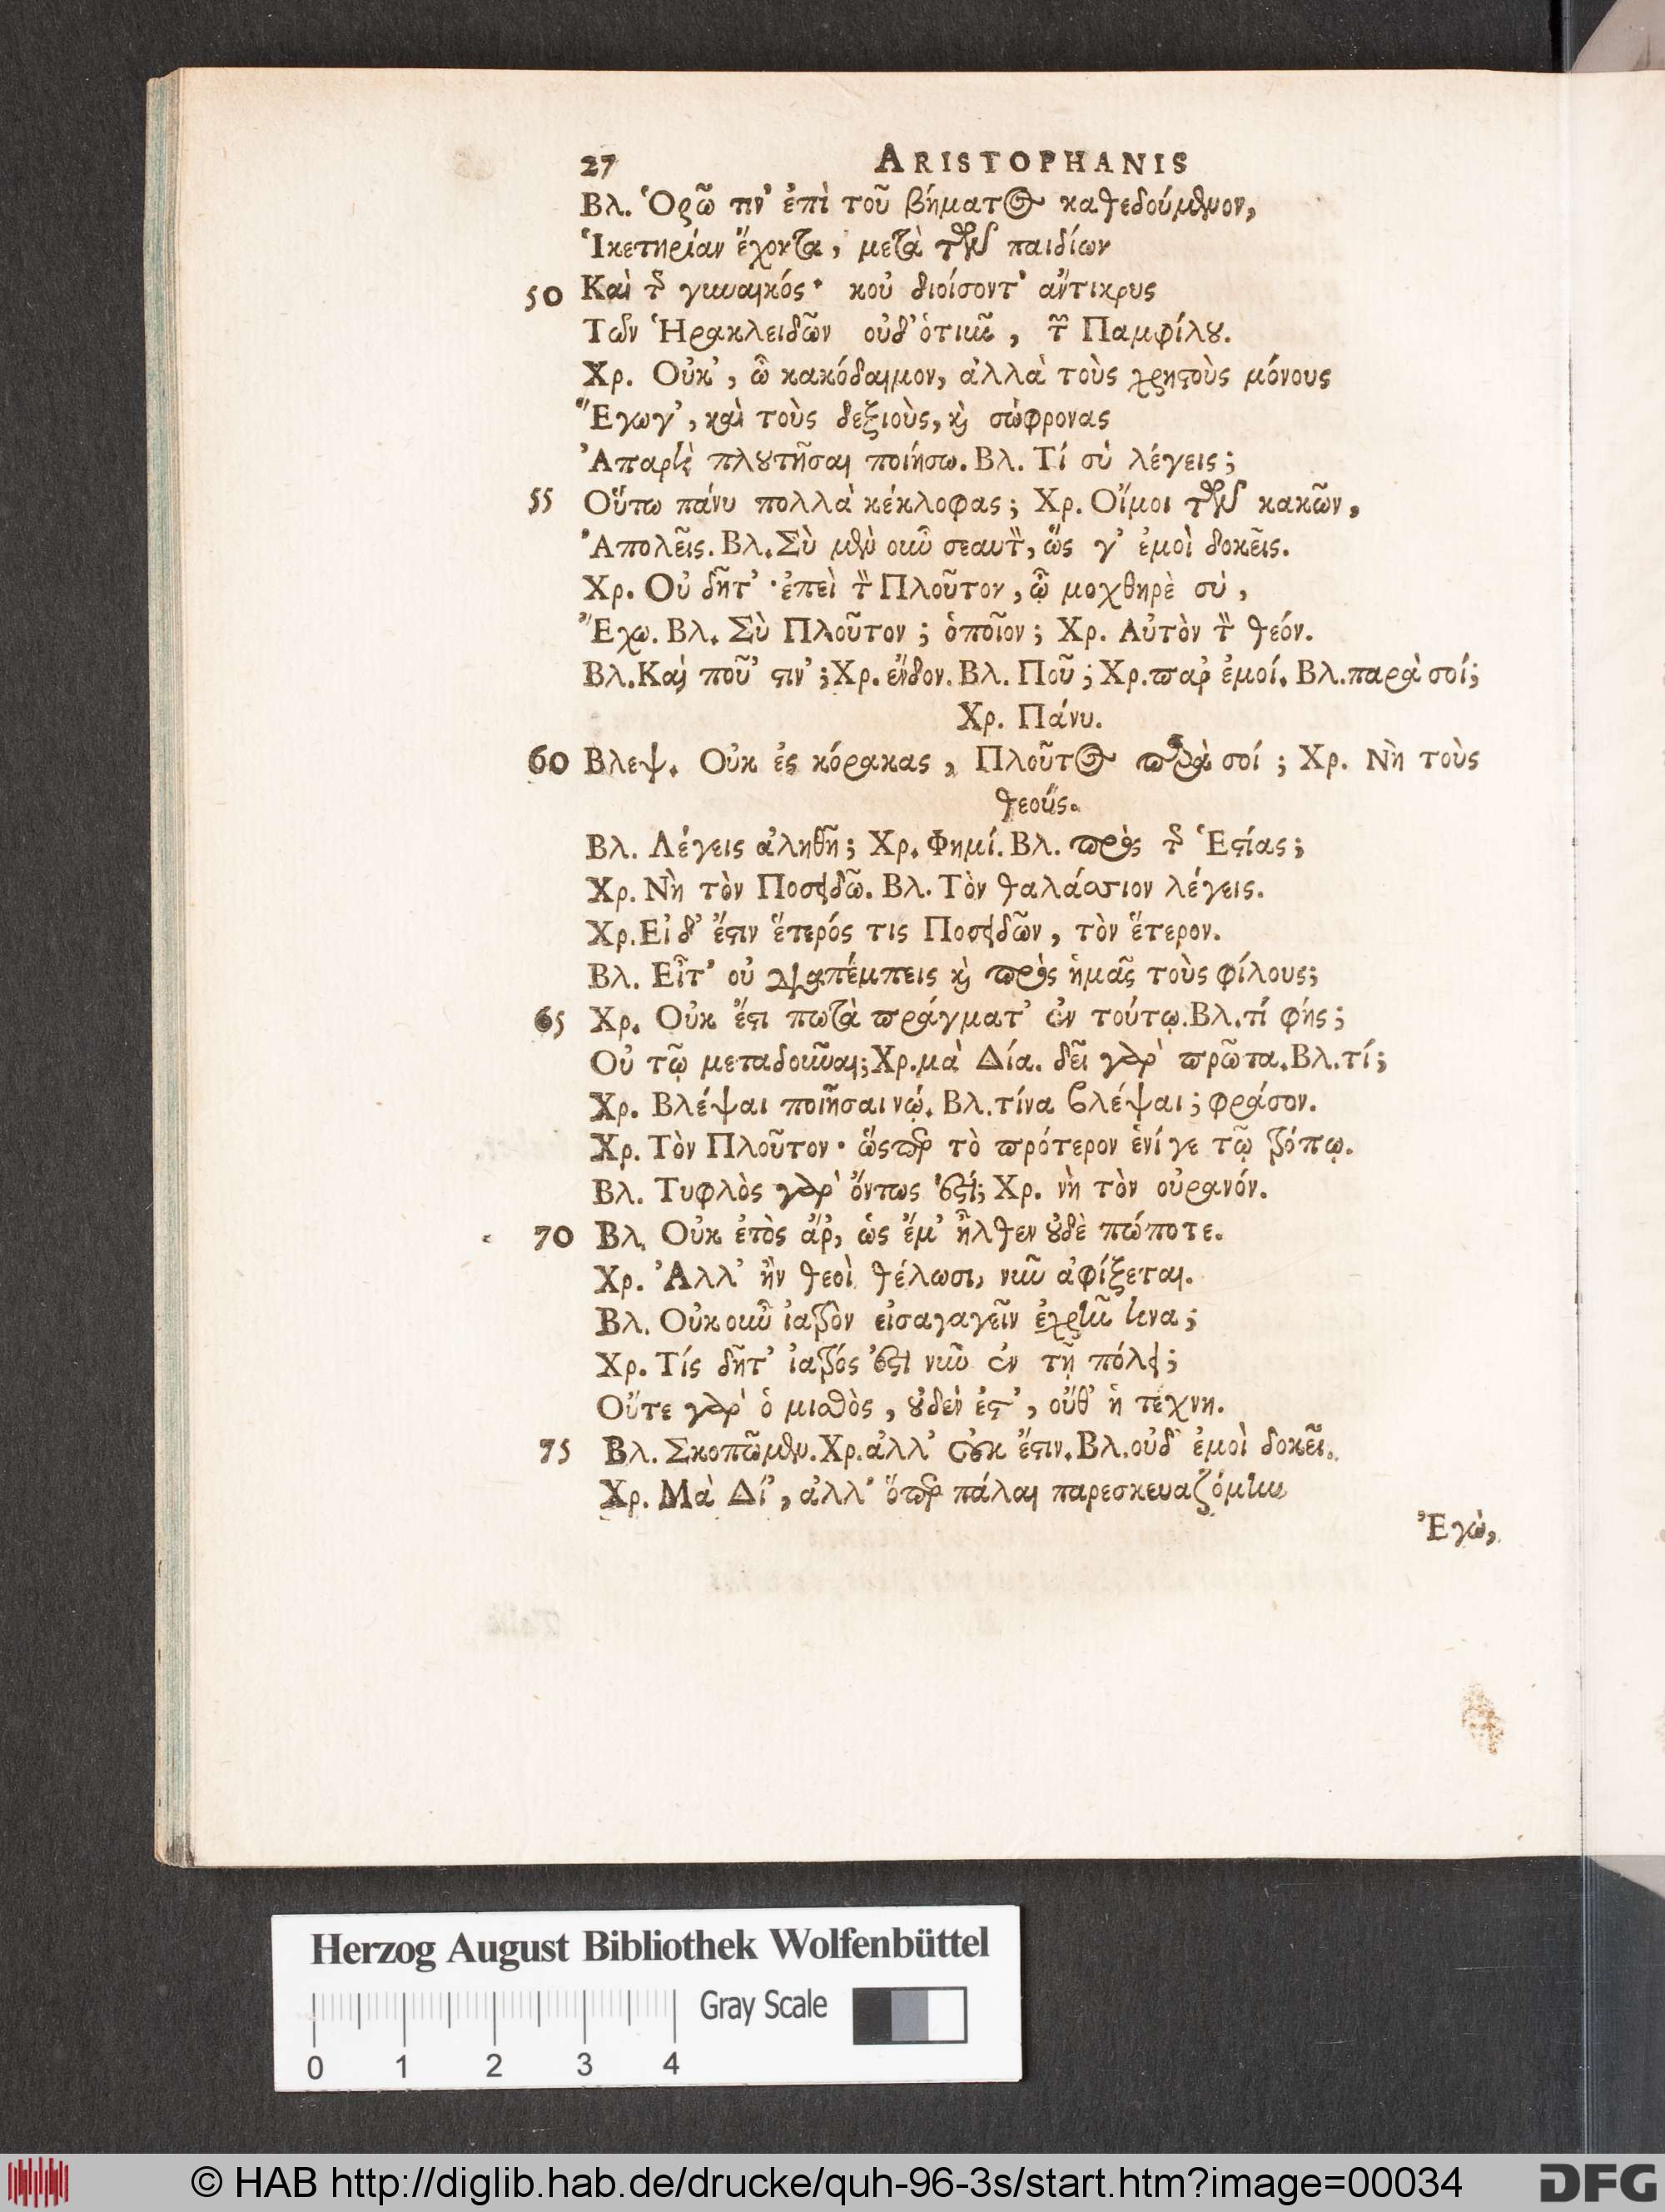 27 ARISTOPHANIS
Βλ. Ὁρῶ τιν' ἐπὶ τοῦ βήματος καθεδούμενον,
Ἱκετηρίαν ἔχοντα, μετὰ τῶν παιδίων
50 Καὶ τῆς γυναικός· κοὐ διοίσοντ' ἄντικρυς
Τῶν Ἡρακλειδῶν οὐδ' ὁτιοῦν, τῶν Παμφίλου.
Χρ. Οὐκ', ὦ κακόδαιμον, ἀλλὰ τοὺς χρηστοὺς μόνους
Ἔγωγ', καὶ τοὺς δεξιοὺς, καὶ σώφρονας
Ἀπαρτὶ πλουτῆσαι ποιήσω. Βλ. Τί σὺ λέγεις;
55 Οὕτω πάνυ πολλὰ κέκλοφας; Χρ. Οἴμοι τῶν κακῶν,
Ἀπολεῖς. Βλ. Σὺ μὲν οὖν σεαυτὸν, ὥς γ' ἐμοὶ δοκεῖς.
Χρ. Οὐ δῆτ'· ἐπεὶ τὸν Πλοῦτον, ὦ μοχθηρὲ σύ,
Ἔχω. Βλ. Σὺ Πλοῦτον; ὁποῖον; Χρ. Αὐτὸν τὸν θεόν.
Βλ. Καὶ ποῦ' στιν'; Χρ. ἔνδον. Βλ. Ποῦ; Χρ. παρ' ἐμοί. Βλ. παρὰ σοί;
Χρ. Πάνυ.
60 Βλεψ. Οὐκ ἐς κόρακας, Πλοῦτος παρὰ σοί; Χρ. Νὴ τοὺς
θεούς.
Βλ. Λέγεις ἀληθῆ; Χρ. Φημί. Βλ. πρὸς τῆς Ἑστίας;
Χρ. Νὴ τὸν Ποσειδῶ. Βλ. Τὸν θαλάσσιον λέγεις.
Χρ. Εἰ δ' ἔστιν ἕτερός τις Ποσειδῶν, τὸν ἕτερον.
Βλ. Εἶτ' οὐ διαπέμπεις καὶ πρὸς ἡμᾶς τοὺς φίλους;
65 Χρ. Οὐκ ἔστι πωτὰ πράγματ' ἐν τούτῳ. Βλ. τί φής;
Οὐ τῷ μεταδοῦναι; Χρ. μὰ Δία. δεῖ γὰρ πρῶτα. Βλ. τί;
Χρ. Βλέψαι ποιῆσαι νώ. Βλ. τίνα βλέψαι; φράσον.
Χρ. Τὸν Πλοῦτον· ὥσπερ τὸ πρότερον ἑνί γε τῷ τρόπῳ.
Βλ. Τυφλὸς γὰρ ὄντως ἐστί; Χρ. νὴ τὸν οὐρανόν.
70 Βλ. Οὐκ ἐτὸς ἄρ, ὡς ἔμ' ἦλθεν οὐδὲ πώποτε.
Χρ. Ἀλλ' ἢν θεοὶ θέλωσι, νῦν ἀφίξεται.
Βλ. Οὐκ οὖν ἰατρὸν εἰσαγαγεῖν ἐχρῆν τινα;
Χρ. Τίς δῆτ' ἰατρός ἐστι νῦν ἐν τῇ πόλει;
Οὔτε γὰρ ὁ μισθὸς, οὐδὲν ἐστ', οὔθ' ἡ τέχνη.
75 Βλ. Σκοπῶμεν. Χρ. ἀλλ' οὐκ ἔστιν. Βλ. οὐδ' ἐμοὶ δοκεῖ.
Χρ. Μὰ Δί', ἀλλ' ὅπερ πάλαι παρεσκευαζόμην
Ἐγὼ,
Herzog August Bibliothek Wolfenbüttel
Gray Scale
0 1 2 3 4
© HAB http://diglib.hab.de/drucke/quh-96-3s/start.htm?image=00034
DFG